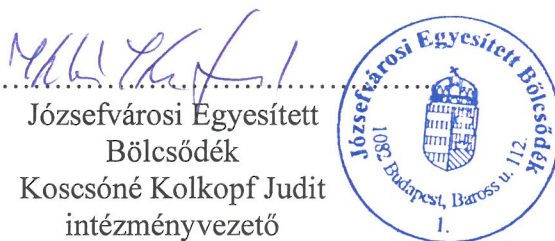 Józsefvárosi Egyesített
Bölcsődék
Koscsóné Kolkopf Judit
intézményvezető
Józsefvárosi Egyesített Bölcsődék
1082 Budapest, Baross u. 112.
1.